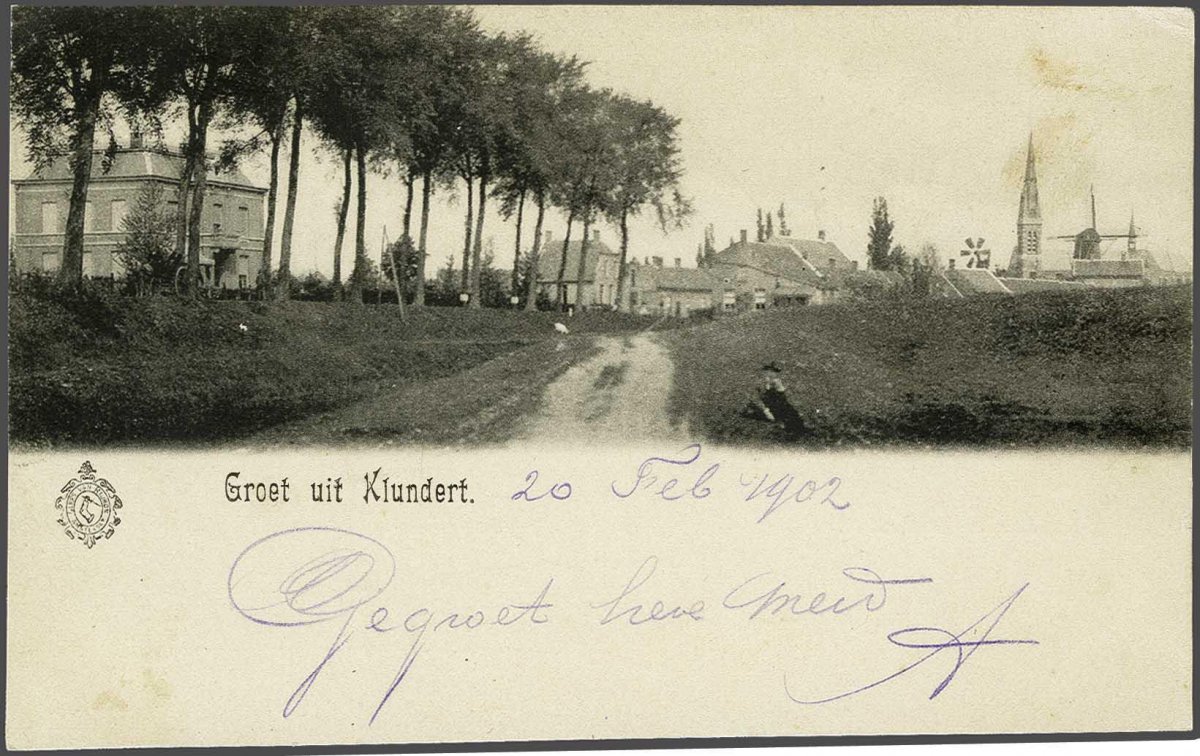 Groet uit Klundert. 20 Feb 1902
Gegroet lieve Meid
A